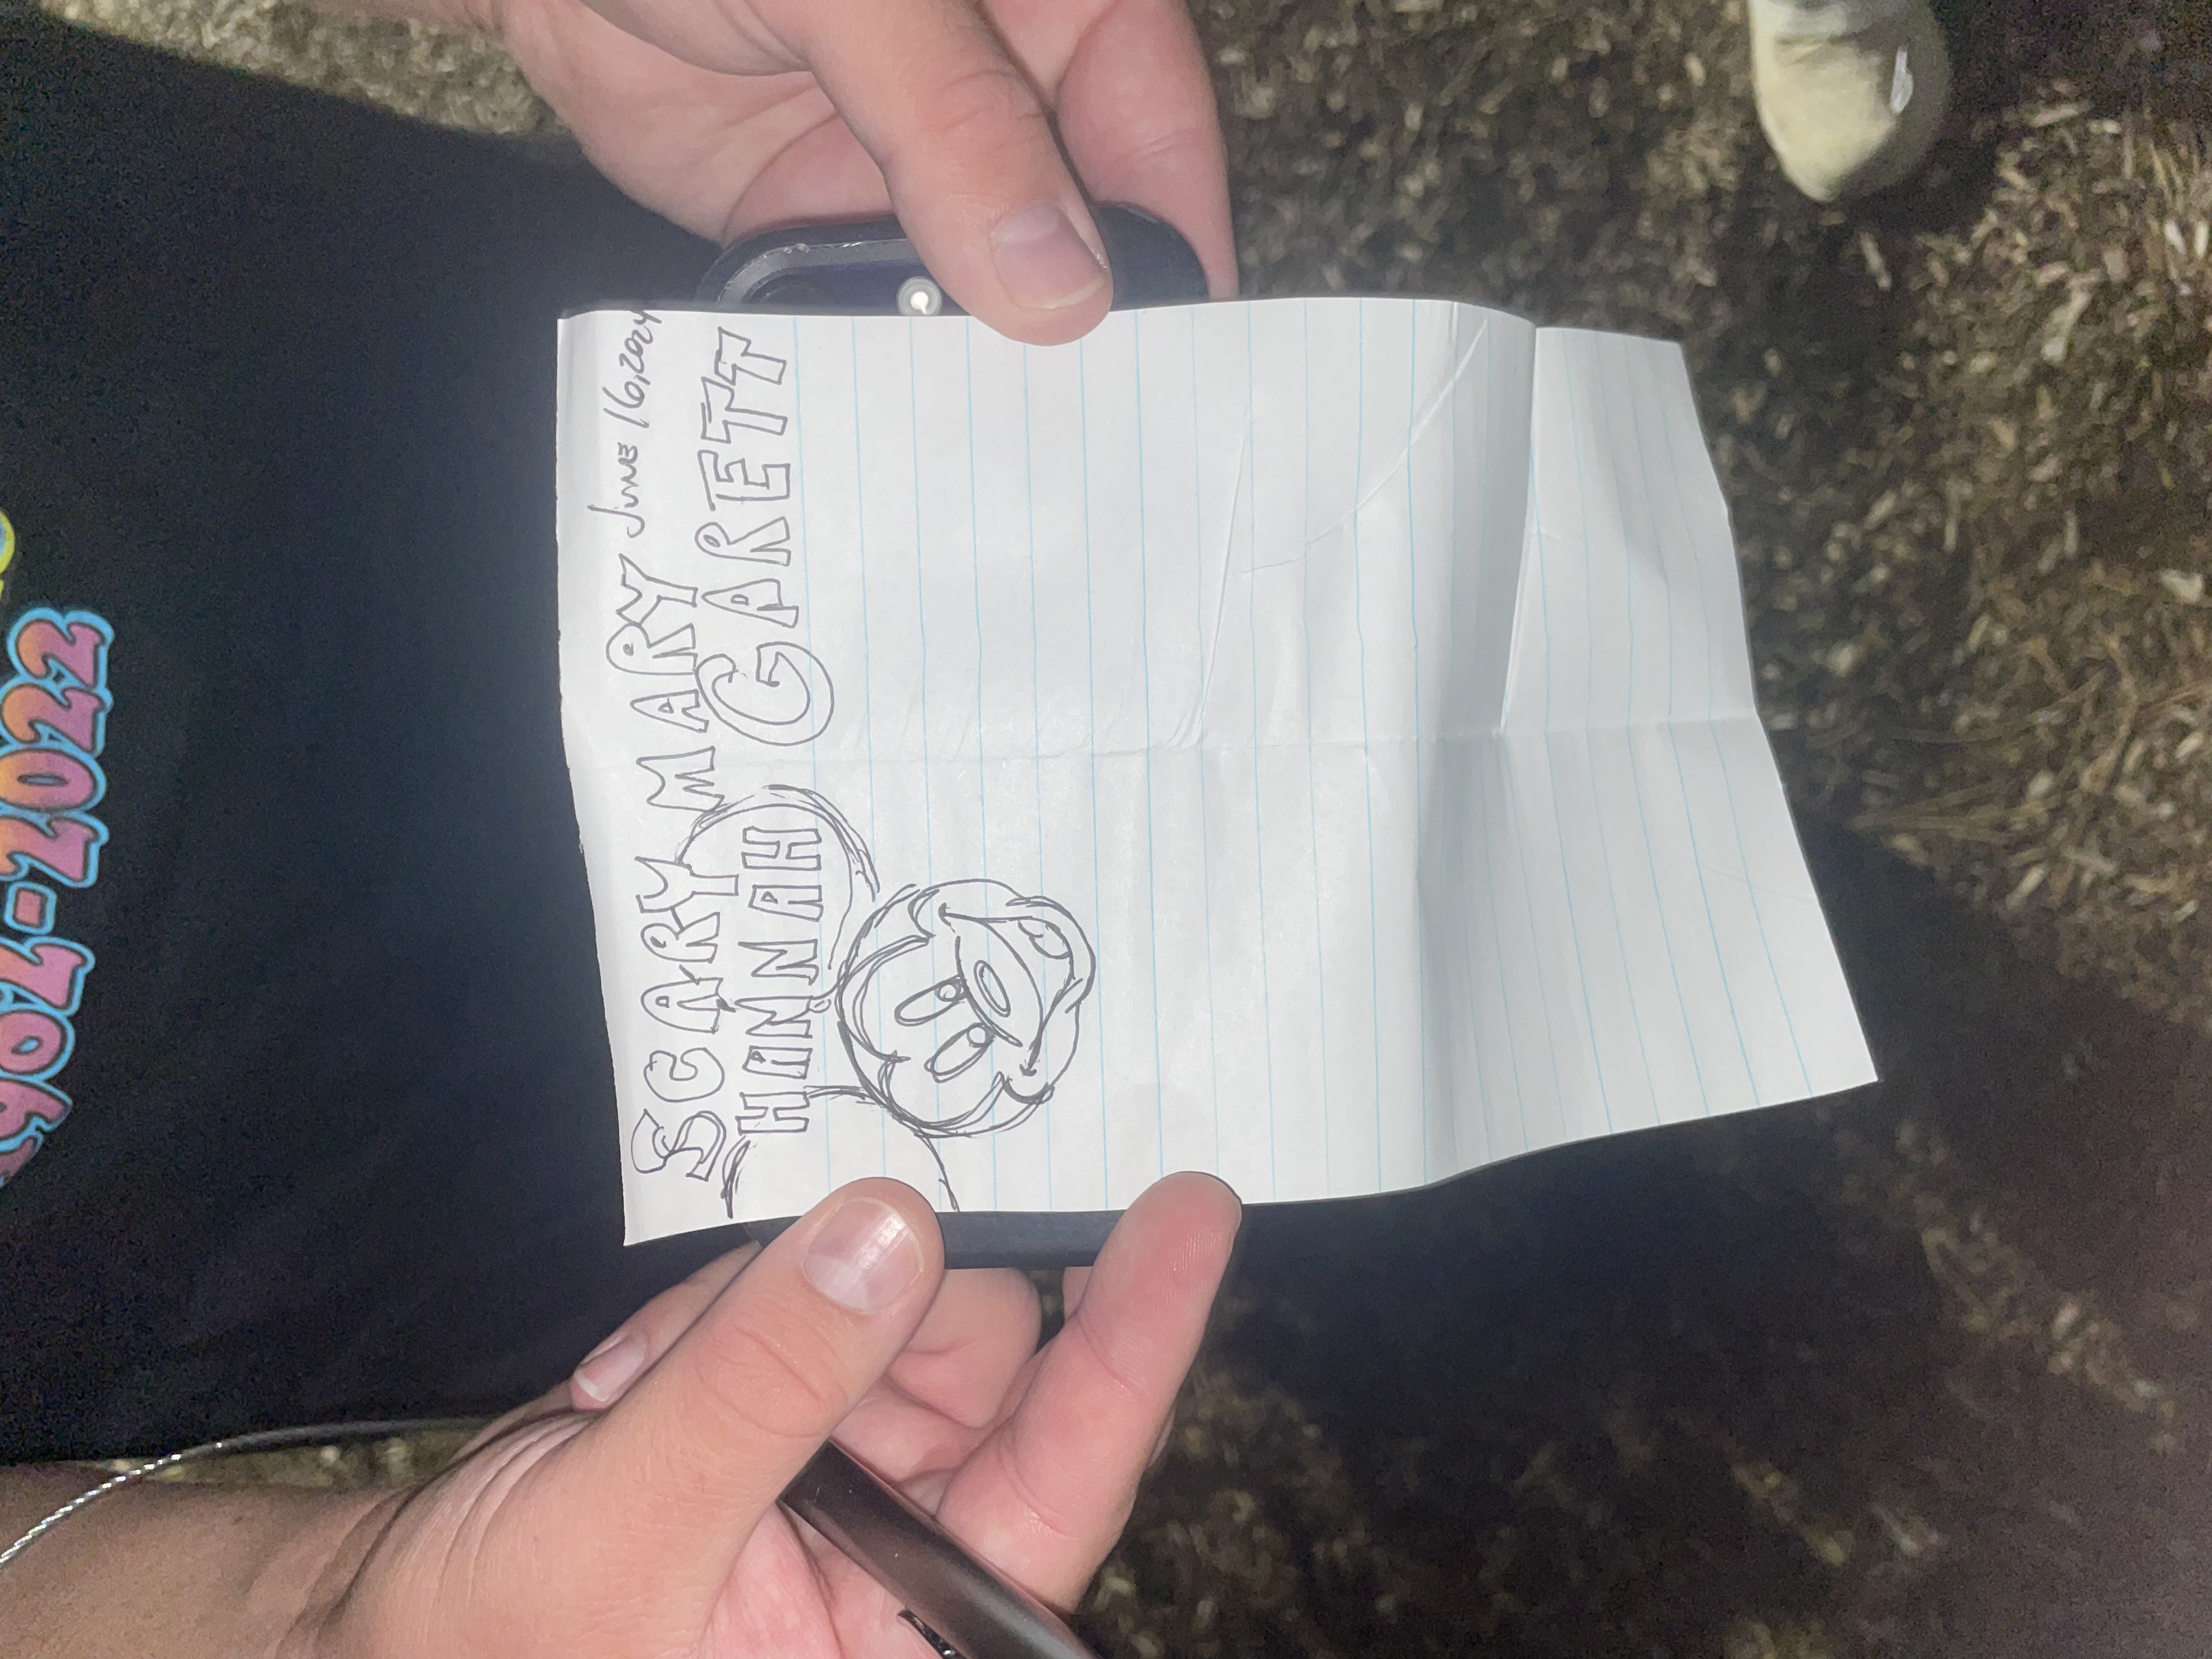 1982-2022
SCARY MARY JUNE 16, 2024
HANNAH GARETT